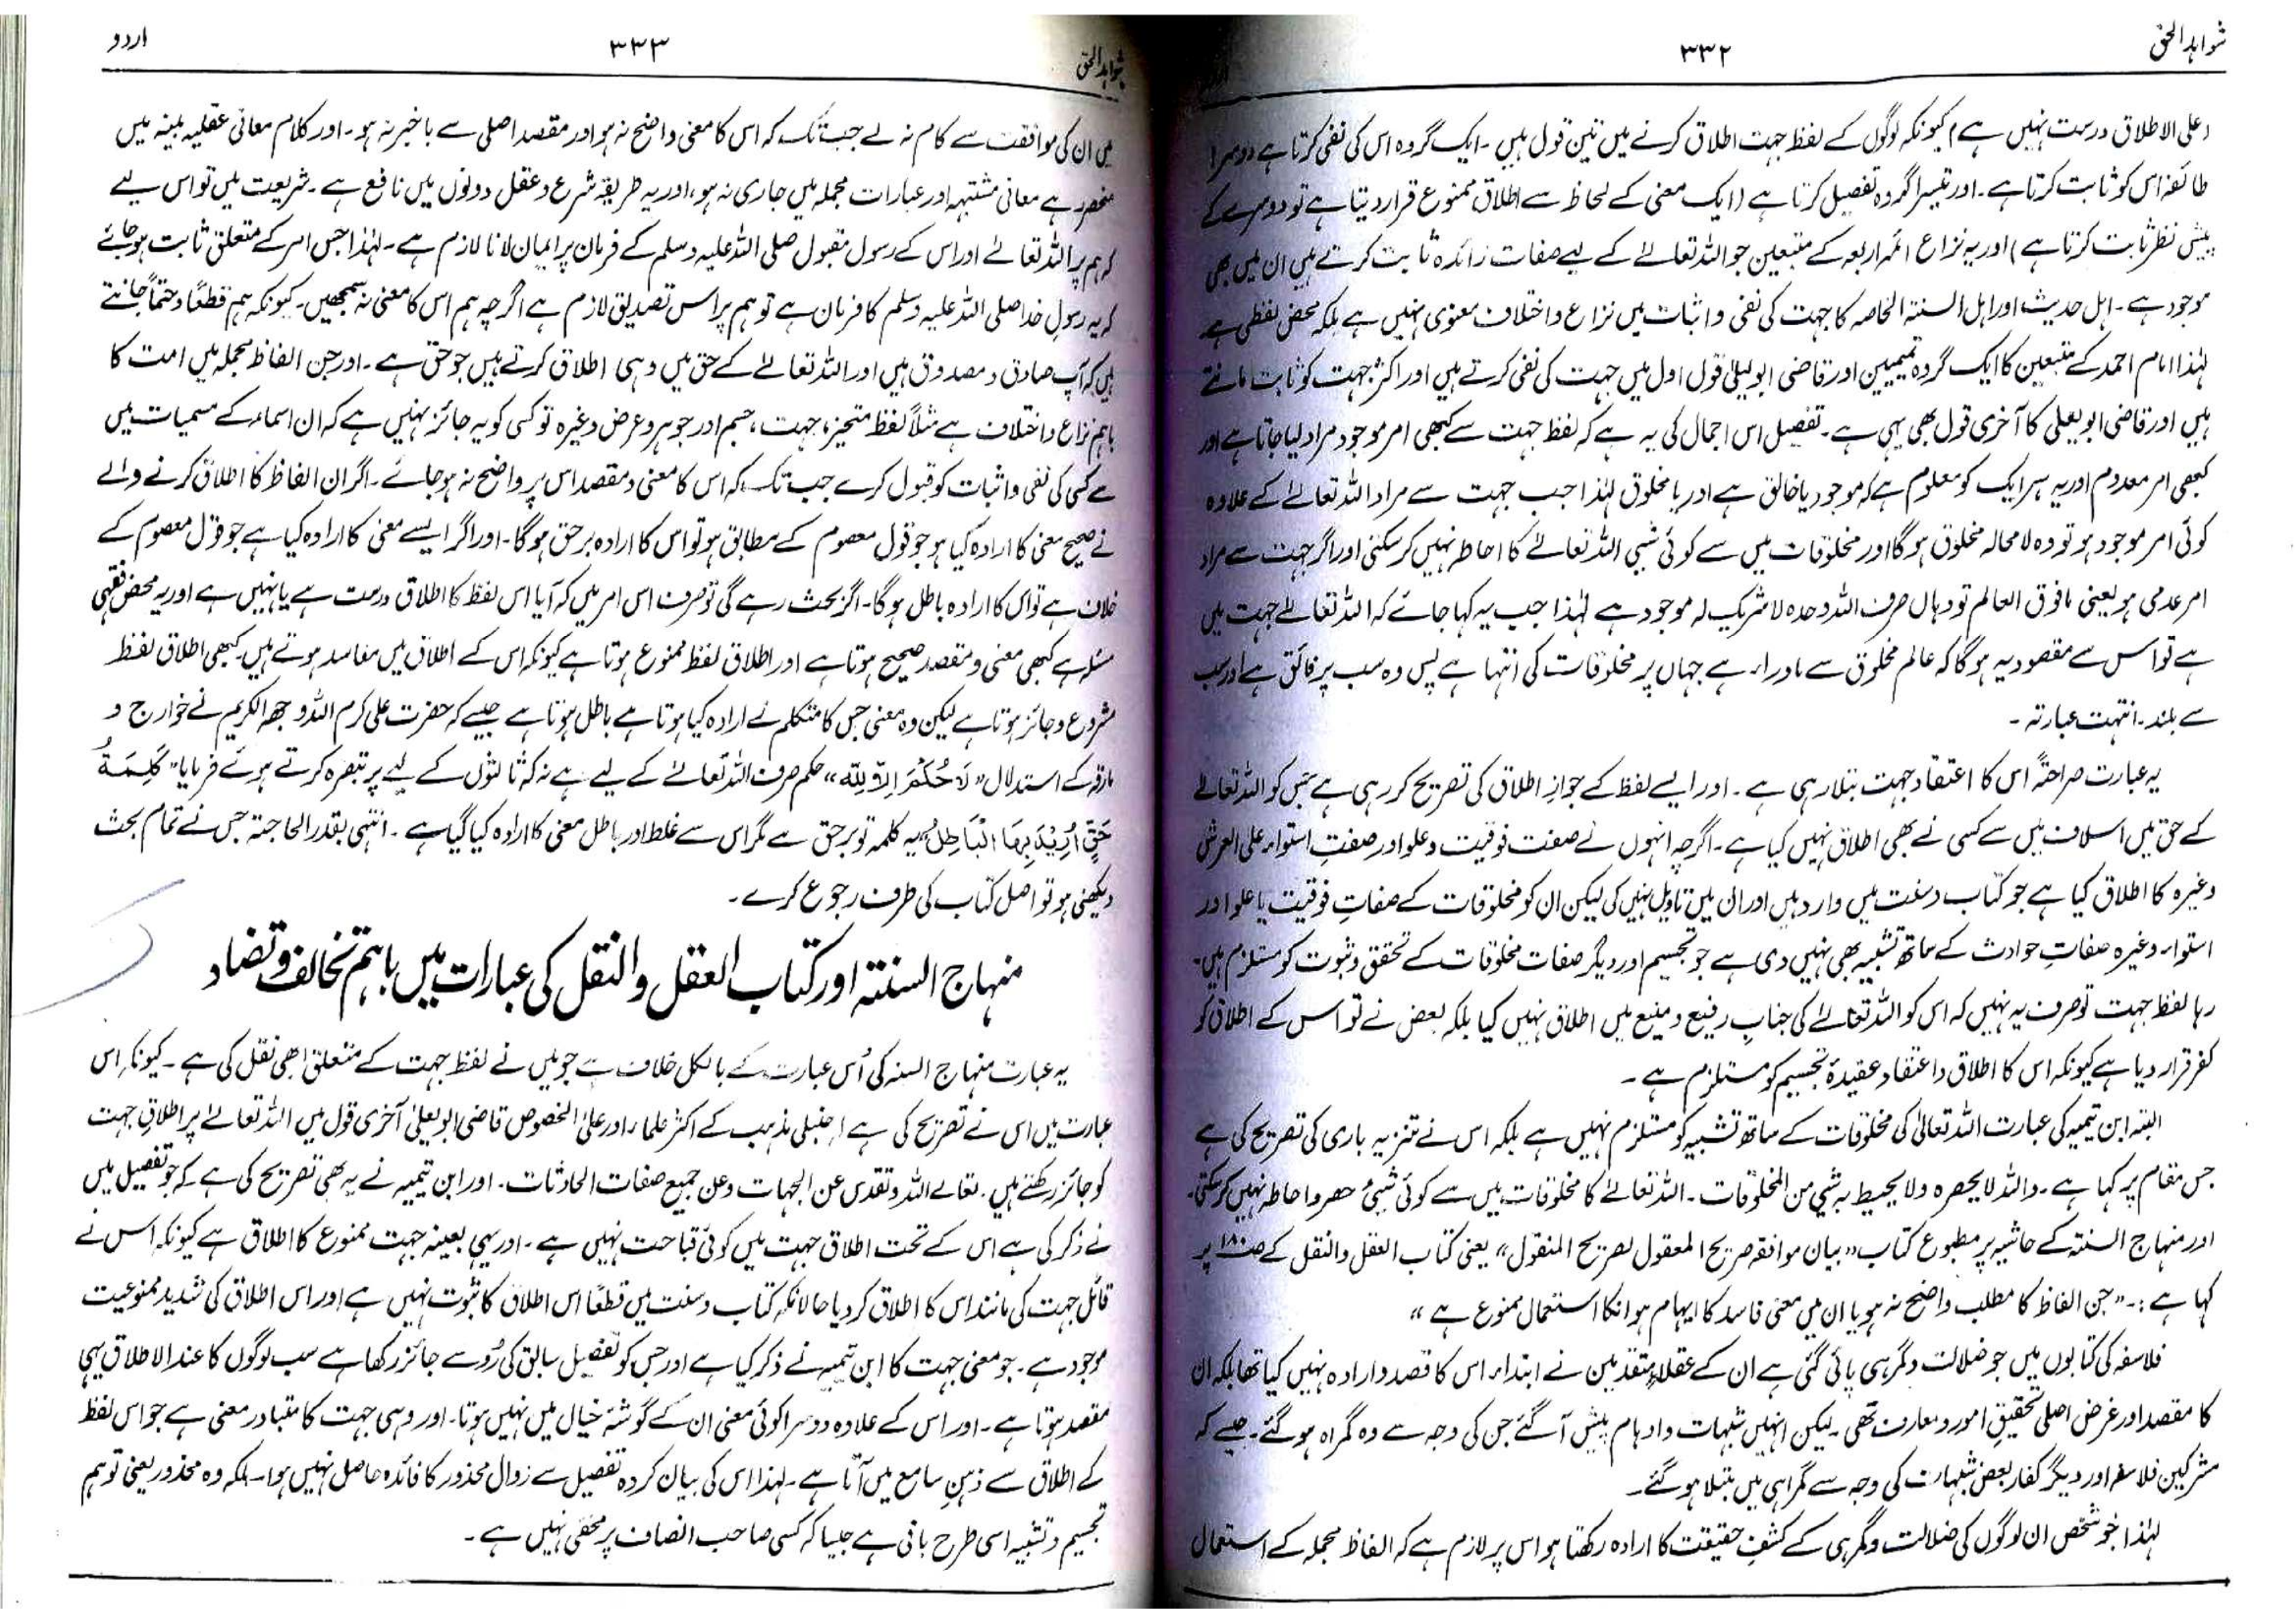 شواہد الحق
۳۳۲
(علی الاطلاق درست نہیں ہے) کیونکہ لوگوں کے لفظ جہت اطلاق کرنے میں تین قول ہیں۔ ایک گروہ اس کی نفی کرتا ہے دوسرا
طائفہ اس کو ثابت کرتا ہے۔ اور تیسرا گروہ تفصیل کرتا ہے (ایک معنی کے لحاظ سے اطلاق ممنوع قرار دیتا ہے تو دوسرے کے
پیش نظر ثابت کرتا ہے) اور یہ نزاع ائمہ اربعہ کے متبعین جو اللہ تعالےٰ کے لیے صفات زائدہ ثابت کرتے ہیں ان میں بھی
موجود ہے۔ اہل حدیث اور اہل السنۃ الخاصہ کا جہت کی نفی و اثبات میں نزاع و اختلاف معنوی نہیں ہے بلکہ محض لفظی ہے
لہٰذا امام احمد کے متبعین کا ایک گروہ تمیمیین اور قاضی ابو یعلیٰ قول اول میں جہت کی نفی کرتے ہیں اور اکثر جہت کو ثابت مانتے
ہیں اور قاضی ابو یعلی کا آخری قول بھی یہی ہے۔ تفصیل اس اجمال کی یہ ہے کہ لفظ جہت سے کبھی امر موجود مراد لیا جاتا ہے اور
کبھی امر معدوم اور یہ ہر ایک کو معلوم ہے کہ موجود یا خالق ہے اور یا مخلوق لہٰذا جب جہت سے مراد اللہ تعالےٰ کے علاوہ
کوئی امر موجود ہو تو وہ لا محالہ مخلوق ہوگا اور مخلوقات میں سے کوئی شیی اللہ تعالےٰ کا احاطہ نہیں کر سکتی اور اگر جہت سے مراد
امر عدمی ہو یعنی مافوق العالم تو وہاں صرف اللہ وحدہ لا شریک لہ موجود ہے لہٰذا جب یہ کہا جائے کہ اللہ تعالےٰ جہت میں
ہے تو اس سے مقصود یہ ہوگا کہ عالم مخلوق سے ماوراء ہے جہاں پر مخلوقات کی انتہا ہے پس وہ سب پر فائق ہے اور سب
سے بلند۔ انتہت عبارتہ۔
یہ عبارت صراحۃً اس کا اعتقاد جہت بتلا رہی ہے۔ اور ایسے لفظ کے جواز اطلاق کی تصریح کر رہی ہے جس کو اللہ تعالےٰ
کے حق میں اسلاف میں سے کسی نے بھی اطلاق نہیں کیا ہے۔ اگرچہ انہوں نے صفت فوقیت و علو اور صفتِ استواء علی العرش
وغیرہ کا اطلاق کیا ہے جو کتاب و سنت میں وارد ہیں اور ان میں تاویل نہیں کی لیکن ان کو مخلوقات کے صفاتِ فوقیت یا علو اور
استواء وغیرہ صفاتِ حوادث کے ساتھ تشبیہ بھی نہیں دی ہے جو تجسیم اور دیگر صفات مخلوقات کے تحقق و ثبوت کو مستلزم ہیں۔
رہا لفظ جہت تو صرف یہ نہیں کہ اس کو اللہ تعالےٰ کی جنابِ رفیع و منیع میں اطلاق نہیں کیا بلکہ بعض نے تو اس کے اطلاق کو
کفر قرار دیا ہے کیونکہ اس کا اطلاق و اعتقاد عقیدۂ تجسیم کو مستلزم ہے۔
البتہ ابن تیمیہ کی عبارت اللہ تعالیٰ کی مخلوقات کے ساتھ تشبیہ کو مستلزم نہیں ہے بلکہ اس نے تنزیہ باری کی تصریح کی ہے
جس مقام پر کہا ہے۔ واللہ لا یحصرہ ولا یحیط بہ شیی من المخلوقات۔ اللہ تعالےٰ کا مخلوقات میں سے کوئی شیئ حصر و احاطہ نہیں کر سکتی۔
اور منہاج السنۃ کے حاشیہ پر مطبوع کتاب "بیان موافقۃ صریح المعقول لصریح المنقول" یعنی کتاب العقل والنقل کے صفحہ ۱۸۰ پر
کہا ہے:۔ "جن الفاظ کا مطلب واضح نہ ہو یا ان میں معنی فاسد کا ایہام ہو انکا استعمال ممنوع ہے"
فلاسفہ کی کتابوں میں جو ضلالت و گمرہی پائی گئی ہے ان کے عقلاءِ متقدمین نے ابتداء اس کا قصد و ارادہ نہیں کیا تھا بلکہ ان
کا مقصد اور غرض اصلی تحقیقِ امور و معارف تھی۔ لیکن انہیں شبہات و اوہام پیش آگئے جن کی وجہ سے وہ گمراہ ہو گئے۔ جیسے کہ
مشرکین فلاسفہ اور دیگر کفار بعض شبہات کی وجہ سے گمراہی میں مبتلا ہو گئے۔
لہٰذا جو شخص ان لوگوں کی ضلالت و گمرہی کے کشفِ حقیقت کا ارادہ رکھتا ہو اس پر لازم ہے کہ الفاظ مجملہ کے استعمال
شواہد الحق
۳۳۳
اردو
میں ان کی موافقت سے کام نہ لے جب تک کہ اس کا معنی واضح نہ ہو اور مقصد اصلی سے باخبر نہ ہو۔ اور کلام معانی عقلیہ بینہ میں
منحصر ہے معانی مشتبہہ اور عبارات مجملہ میں جاری نہ ہو، اور یہ طریقہ شرع و عقل دونوں میں نافع ہے۔ شریعت میں تو اس لیے
کہ ہم پر اللہ تعالےٰ اور اس کے رسول مقبول صلی اللہ علیہ وسلم کے فرمان پر ایمان لانا لازم ہے۔ لہٰذا جس امر کے متعلق ثابت ہو جائے
کہ یہ رسولِ خدا صلی اللہ علیہ وسلم کا فرمان ہے تو ہم پر اس تصدیق لازم ہے اگرچہ ہم اس کا معنی نہ سمجھیں۔ کیونکہ ہم قطعاً و حتماً جانتے
ہیں کہ آپ صادق و مصدوق ہیں اور اللہ تعالےٰ کے حق میں وہی اطلاق کرتے ہیں جو حق ہے۔ اور جن الفاظ مجملہ میں امت کا
باہم نزاع و اختلاف ہے مثلاً لفظ متحیز، جہت، جسم اور جوہر و عرض وغیرہ تو کسی کو یہ جائز نہیں ہے کہ ان اسماء کے مسمیات میں
سے کسی کی نفی و اثبات کو قبول کرے جب تک کہ اس کا معنی و مقصد اس پر واضح نہ ہو جائے۔ اگر ان الفاظ کا اطلاق کرنے والے
نے صحیح معنی کا ارادہ کیا ہو جو قول معصوم کے مطابق ہو تو اس کا ارادہ برحق ہوگا۔ اور اگر ایسے معنی کا ارادہ کیا ہے جو قول معصوم کے
خلاف ہے تو اس کا ارادہ باطل ہوگا۔ اگر بحث رہے گی تو صرف اس امر میں کہ آیا اس لفظ کا اطلاق درست ہے یا نہیں ہے اور یہ محض فقہی
مسئلہ ہے کبھی معنی و مقصد صحیح ہوتا ہے اور اطلاق لفظ ممنوع ہوتا ہے کیونکہ اس کے اطلاق میں مفاسد ہوتے ہیں۔ کبھی اطلاق لفظ
مشروع و جائز ہوتا ہے لیکن وہ معنی جس کا متکلم نے ارادہ کیا ہوتا ہے باطل ہوتا ہے جیسے کہ حضرت علی کرم اللہ وجہہ الکریم نے خوارج و
مارقہ کے استدلال "لَا حُكْمَ اِلَّا لِلّٰه" حکم صرف اللہ تعالےٰ کے لیے ہے نہ کہ ثالثوں کے لیے پر تبصرہ کرتے ہوئے فرمایا "كَلِمَةُ
حَقٍّ اُرِيْدَ بِهَا الْبَاطِلُ" یہ کلمہ تو برحق ہے مگر اس سے غلط اور باطل معنی کا ارادہ کیا گیا ہے۔ انتہی بقدر الحاجتہ جس نے تمام بحث
دیکھنی ہو تو اصل کتاب کی طرف رجوع کرے۔
منہاج السنتہ اور کتاب العقل والنقل کی عبارات میں باہم تخالف و تضاد
یہ عبارت منہاج السنہ کی اُس عبارت کے بالکل خلاف ہے جو میں نے لفظ جہت کے متعلق ابھی نقل کی ہے۔ کیونکہ اس
عبارت میں اس نے تصریح کی ہے ا حنبلی مذہب کے اکثر علماء اور علی الخصوص قاضی ابو یعلیٰ آخری قول میں اللہ تعالےٰ پر اطلاقِ جہت
کو جائز رکھتے ہیں۔ تعالے اللہ و تقدس عن الجہات وعن جمیع صفات الحادثات۔ اور ابن تیمیہ نے یہ بھی تصریح کی ہے کہ جو تفصیل میں
نے ذکر کی ہے اس کے تحت اطلاق جہت میں کوئی قباحت نہیں ہے۔ اور یہی بعینہ جہت ممنوع کا اطلاق ہے کیونکہ اس نے
قائل جہت کی مانند اس کا اطلاق کر دیا حالانکہ کتاب و سنت میں قطعاً اس اطلاق کا ثبوت نہیں ہے اور اس اطلاق کی شدید ممنوعیت
موجود ہے۔ جو معنی جہت کا ابن تیمیہ نے ذکر کیا ہے اور جس کو تفصیل سابق کی رُو سے جائز رکھا ہے سب لوگوں کا عند الاطلاق یہی
مقصد ہوتا ہے۔ اور اس کے علاوہ دوسرا کوئی معنی ان کے گوشۂ خیال میں نہیں ہوتا۔ اور وہی جہت کا متبادر معنی ہے جو اس لفظ
کے اطلاق سے ذہنِ سامع میں آتا ہے۔ لہٰذا اس کی بیان کردہ تفصیل سے زوال محذور کا فائدہ حاصل نہیں ہوا۔ بلکہ وہ محذور یعنی توہم
تجسیم و تشبیہ اسی طرح باقی ہے جیسا کہ کسی صاحب انصاف پر مخفی نہیں ہے۔